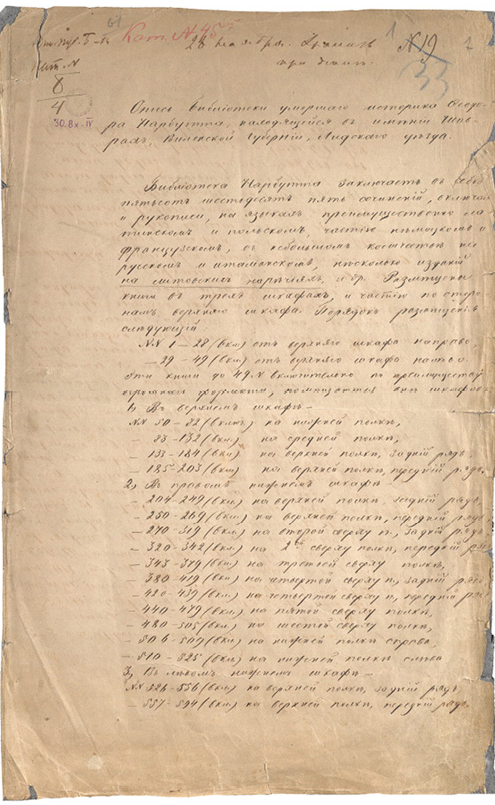 Кат. N 45
28 ноября
N 19
33
8
4
Опись библіотеки умершаго историка Ѳеодо-
ра Нарбутта, находящейся въ имѣніи Шав-
рахъ, Виленской Губерніи, Лидскаго уѣзда.
Библіотека Нарбутта заключаетъ въ себѣ
пятьсотъ шестьдесятъ пять сочиненій, включая
и рукописи, на языкахъ преимущественно ла-
тинскомъ и польскомъ, частію нѣмецкомъ и
французскомъ, въ небольшомъ количествѣ на
русскомъ и итальянскомъ, нѣсколько изданій
на литовскихъ нарѣчіяхъ, и др. Размѣщены
книги въ трехъ шкафахъ, и частію по сторо-
намъ верхняго шкафа. Порядокъ размѣщенія
слѣдующій
NN 1 – 28 (вкл) отъ верхняго шкафа направо,
– 29 – 49 (вкл) отъ верхняго шкафа налѣво.
эти книги до 49 N включительно въ преимуществу
формата, помещаются внѣ шкафовъ
1, Въ верхнемъ шкафѣ –
NN 50 – 82 (включ) на нижней полкѣ,
83 – 132 (вкл) на средней полкѣ,
– 133 – 184 (вкл) на верхней полкѣ, задній рядъ
– 185 – 203 (вкл) на верхней полкѣ, передній рядъ.
2, Въ правомъ нижнемъ шкафѣ
– 204 – 249 (вкл) на верхней полкѣ задній рядъ,
– 250 – 269 (вкл) на верхней полкѣ, передній рядъ,
– 270 – 319 (вкл) на второй сверху п., задній рядъ
– 320 – 342 (вкл) на 2ой сверху полкѣ, передній ряд
– 343 – 379 (вкл) на третьей сверху полкѣ,
– 380 – 419 (вкл) на четвертой сверху п, задній ряд
– 420 – 439 (вкл) на четвертой сверху п, передній ряд
– 440 – 479 (вкл) на пятой сверху полкѣ,
– 480 – 505 (вкл) на шестой сверху полкѣ,
– 506 – 509 (вкл) на нижней полкѣ справа,
– 510 – 525 (вкл) на нижней полкѣ слѣва
3, Въ лѣвомъ нижнемъ шкафѣ –
NN 526 – 556 (вкл) на верхней полкѣ, задній рядъ,
– 557 – 594 (вкл) на верхней полкѣ, передній рядъ